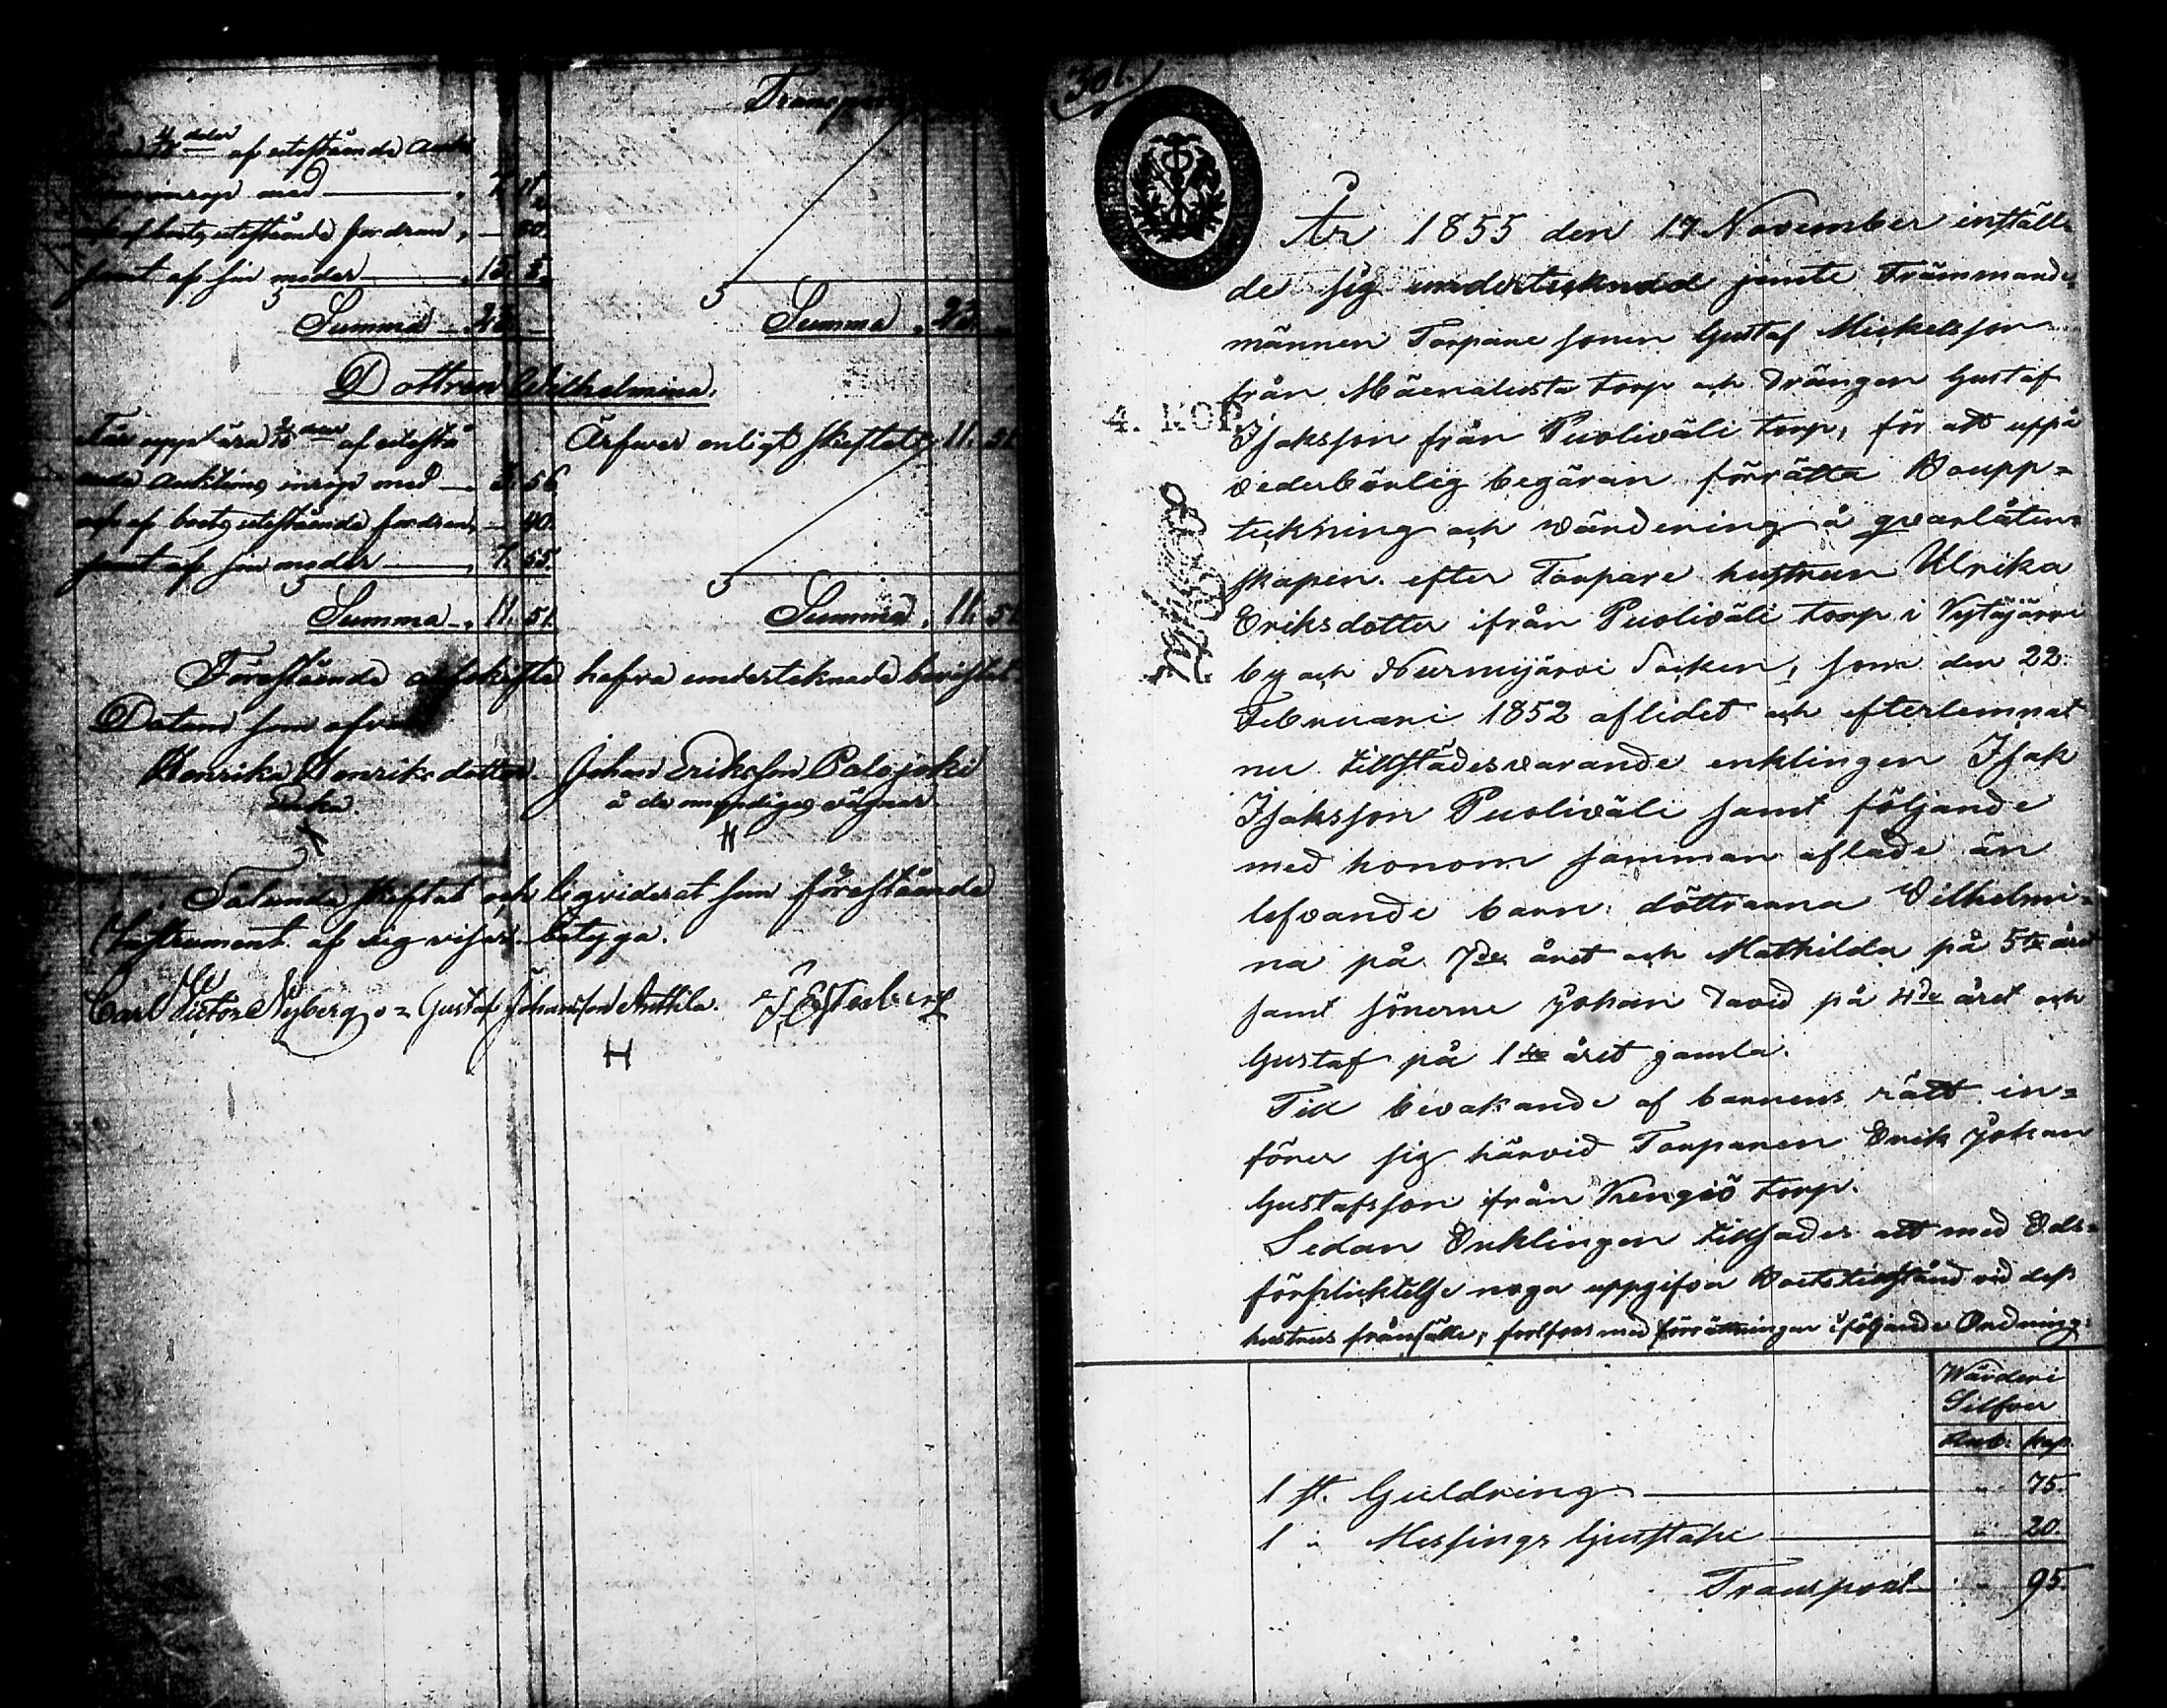 Transport
4/8 delar af utestående Auk
inrop med 7. 11
och af boets utestående fordran, 80.
samt af sin moder 15. 5.
Summa 23.
Summa 23.
Dottren Wilhelmina.
Får uppbära 2/8 delar af utestå
Ärfwer enligt skiftet 11. 51
ende Auktions inrop med 3. 56
och af boets utestående fordran, 40.
samt af sin moder 7. 55.
Summa 11. 51.
Summa 11. 51
Förestående arfskifte hafva undertecknade bevistat
Datum som ofvan
Henrika Henriksdotter. Johan Eriksson Palojoki
Enka. å de omyndigas vägnar.
Sålunda skiftat och liqviderat som förestående
Instrument af sig visar. Betyga.
Carl Victor Nyberg Gustaf Johansson Anttila.
301.
4. KOP.
År 1855 den 17 November instäl-
de sig undertecknad jemte Främmande
männen Torpare sonen Gustaf Mickelsson
från torp och Drängen Gustaf
Isaksson från Puoliväli torp, för att uppå
vederbörlig begäran förrätta Boupp=
teckning och värdering å qvarlåten=
skapen efter Torpare hustrun Ulrika
Eriksdotter ifrån Puolivāli torp i
by och Nurmijärvi Socken, som den 22
Februari 1852 aflidet och efterlemnat
nu tillstädesvarande enklingen Isak
Isaksson Puoliväli samt följande
med honom samman aflade än
lefvande barn: döttrarna Vilhelmi=
na på 7de året och Mathilda på 5te året
samt sönerne Johan David på 4de året och
Gustaf på 1sta året gamla.
Till bevakande af barnens rätt in=
föner sig härvid Torparen Erik Johan
Gustafsson från torp.
Sedan Enklingen tillsades att med Eds=
förplicktelse noga uppgifva Boets tillstånd vid dess
hustrus frånfälle, fortfors med förrättningen i följande Ordning:
Värder i
Silfver
Rub. Kop.
1 st. Guldring " 75.
1 " Messings ljusstake " 20.
Transport " 95.